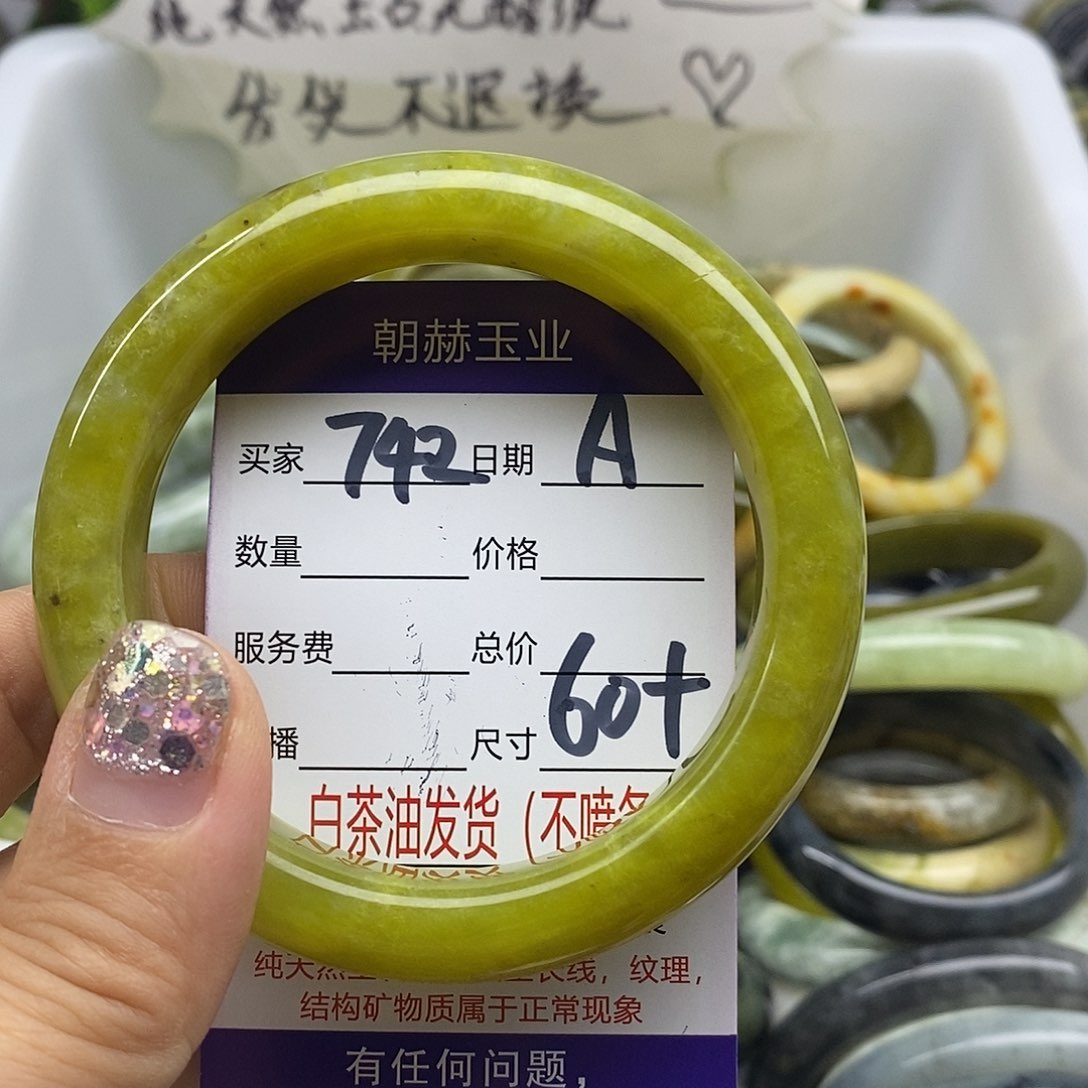 纯天然玉石无瑕疵
售出不退换
朝赫玉业
买家 742 日期 A
数量 价格
服务费 总价
播 尺寸 60+
白茶油发货（不喷
纯天然 长线，纹理，
结构矿物质属于正常现象
有任何问题，